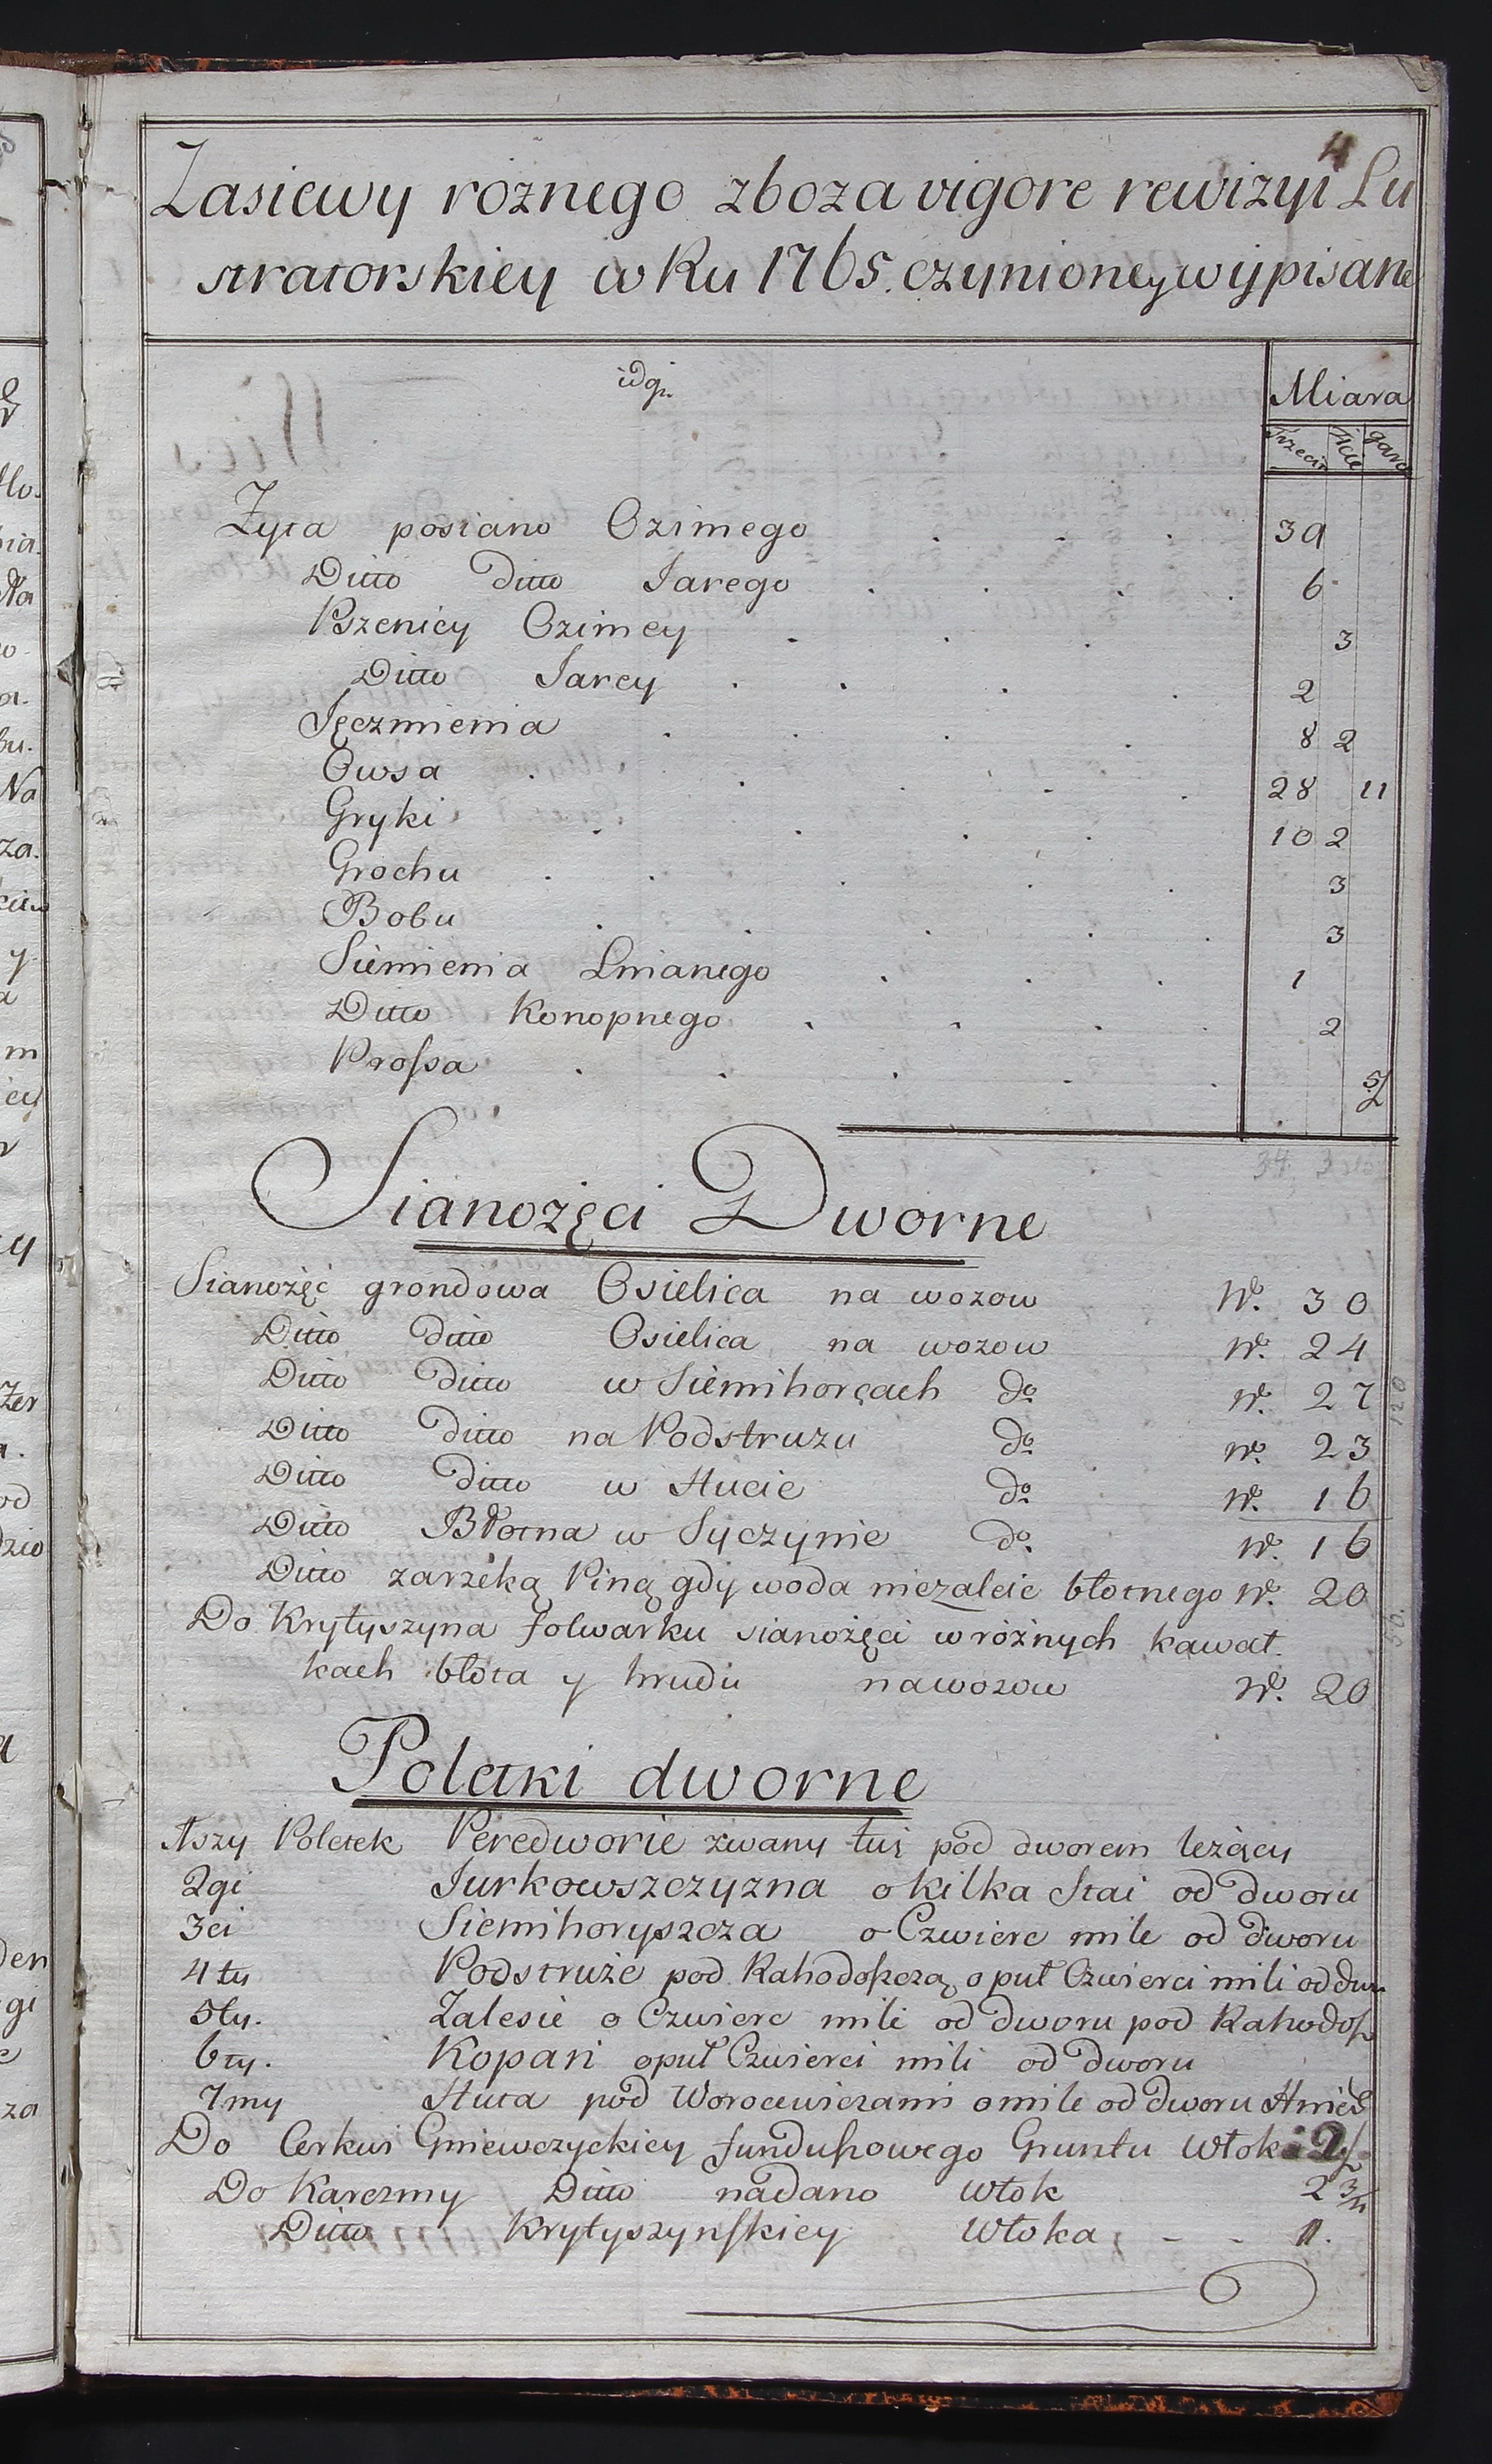 4
Zasiewy roznego zboza vigore rewizyi Lu
stratorskiey w Ku 1765. czynioney wypisane
idq.
Miara
Trzecin garc
Zyta posiano Ozimego 39
Ditto ditto Jarego 6
Pszenicy Ozimey 3
Ditto Jarey 2
Jęczmienia 8 2
Owsa 28 11
Gryki 10 2
Grochu 3
Bobu 3
Siemienia Lnianego 1
Ditto Konopnego 2
Prossa
34 3
Sianozęci Dworne
Sianożęć grondowa Osielica na wozow No. 30
Ditto ditto Osielica na wozow No. 24
Ditto ditto w Siemihorcach do No. 27
Ditto ditto na Podstruzu do No. 23
Ditto ditto w Hucie do No. 16
120
Ditto Błotna w Syczynie do. No. 16
Ditto zarzéką Piną gdy woda niezaleie błotnego No. 20
Do Krytyszyna folwarku sianożęci w różnych kawał.
kach błota y hrudu nawozow No. 20
Poletki dworne
1szy Poletek Peredworie zwany tuż pod dworem leżący
2gi Jurkowszczyzna o kilka Stai od dworu
3ci Siemihoryszcza o Czwierc mile od dworu
4ty Podstruże pod Rahodoszczą o puł Czwierci mili od dwu
5ty. Zalesie o Czwierc mili od dworu pod Rahodos
6ty. Kopań o puł Czwierci mili od dworu
7my Huta pod Worocewiczami o mile od dworu Hniew
Do Cerkwi Gniewczyckiey funduszowego Gruntu Włok 2
Do Karczmy Ditto nadano Włok 2
Ditto Krytyszynskiey Włoka - - 1.